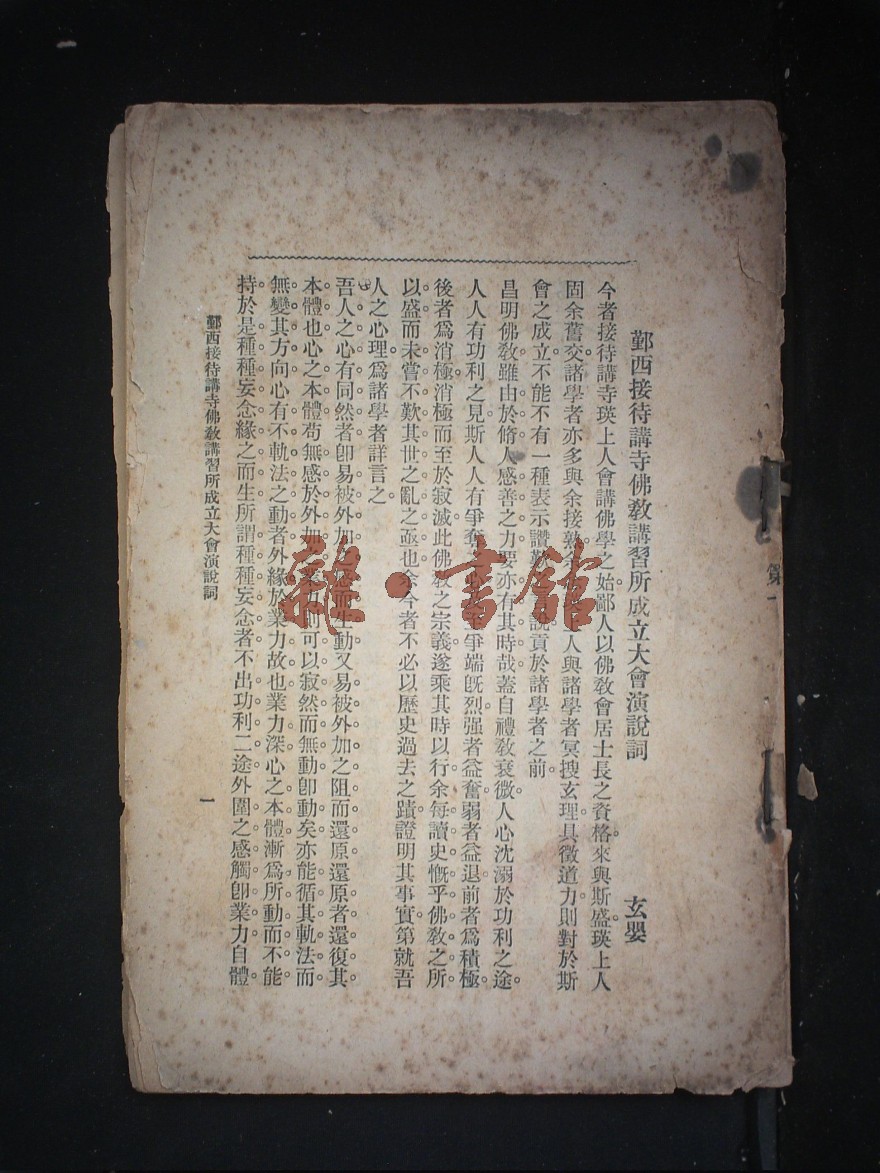 鄞西接待講寺佛教講習所成立大會演說詞
玄嬰
今者接待講寺瑛上人會講佛學之始鄙人以佛教會居士長之資格來與斯盛瑛上人
固余舊交諸學者亦多與余接熟 人與諸學者冥搜玄理具徵道力則對於斯
會之成立不能不有一種表示讚歎 說貢於諸學者之前
昌明佛教雖由於脩人感善之力要亦有其時哉蓋自禮教衰微人心沈溺於功利之途
人人有功利之見斯人人有爭奪 爭端既烈强者益奮弱者益退前者爲積極
後者爲消極消極而至於寂滅此佛教之宗義遂乘其時以行余每讀史慨乎佛教之所
以盛而未嘗不歎其世之亂之亟也余今者不必以歷史過去之蹟證明其事實第就吾
人之心理爲諸學者詳言之
吾人之心有同然者卽易被外加之感而生動又易被外加之阻而還原還原者還復其
本體也心之本體苟無感於外加 業力則可以寂然而無動卽動矣亦能循其軌法而
無變其方向心有不軌法之動者外緣於業力故也業力深心之本體漸爲所動而不能
持於是種種妄念緣之而生所謂種種妄念者不出功利二途外圍之感觸卽業力自體
鄞西接待講寺佛教講習所成立大會演說詞
一
第一
雜·書館